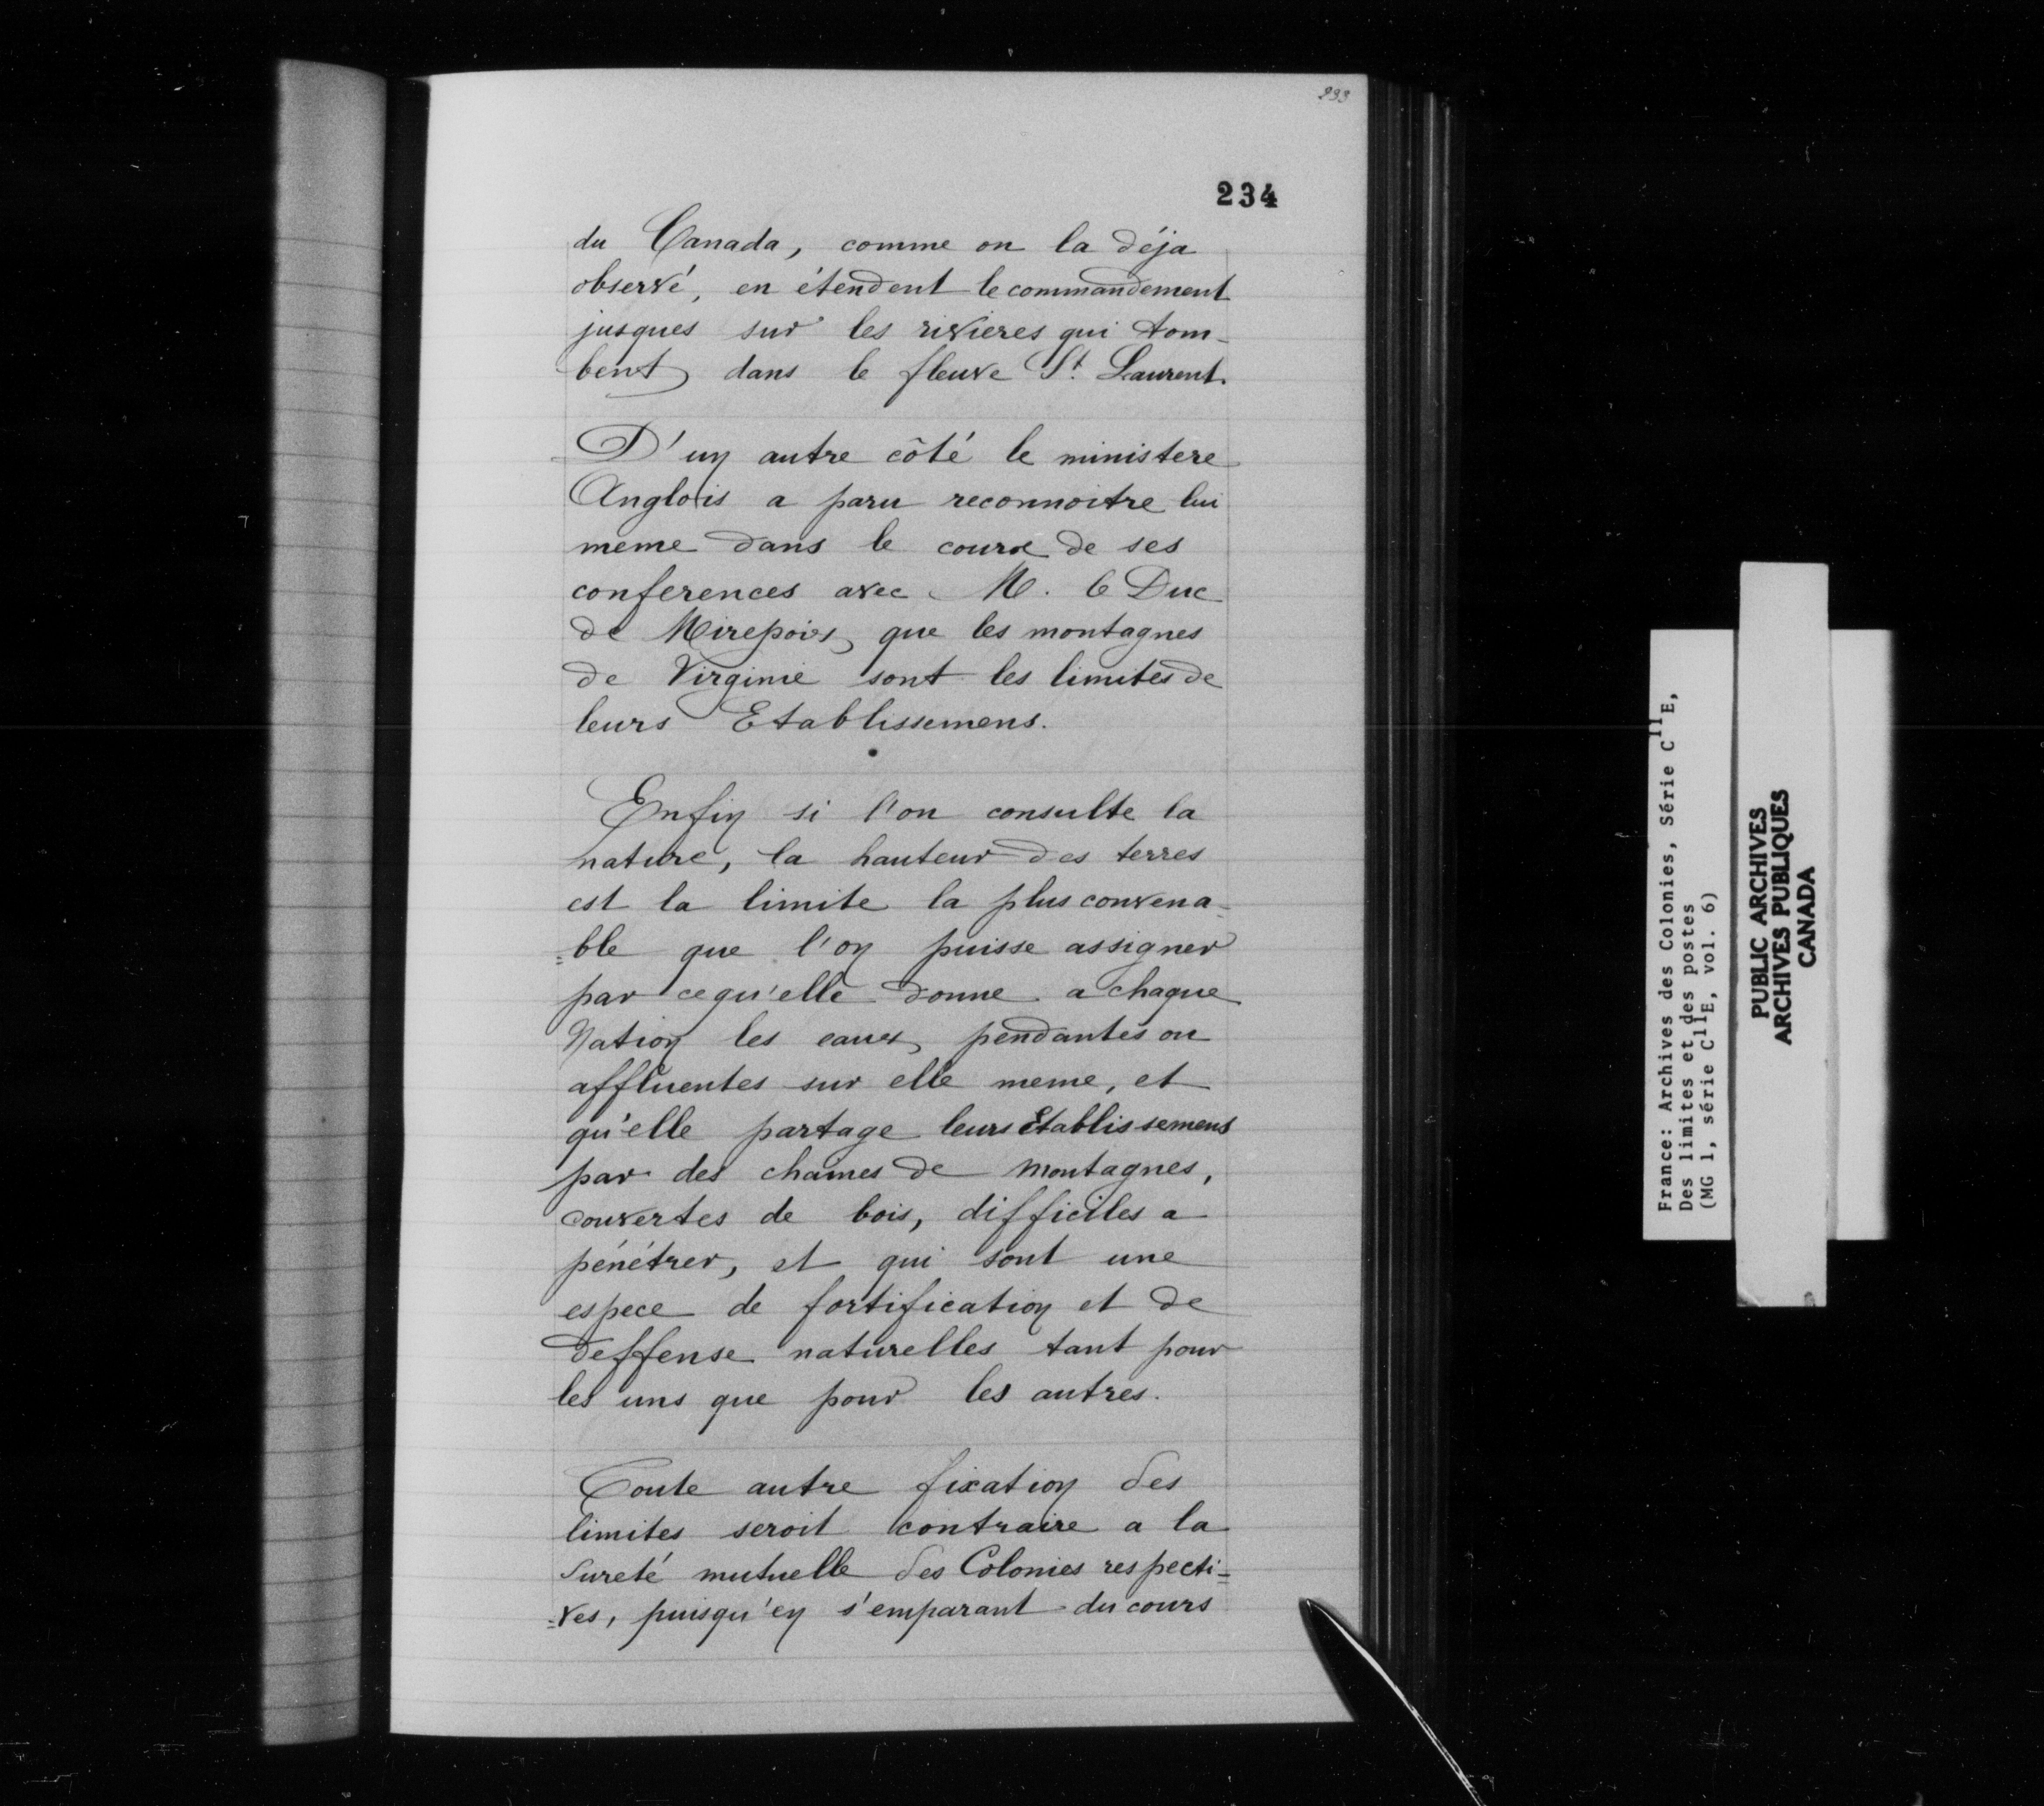 233
234
du Canada, comme on la déja
observé, en étendent le commandement
jusques sur les rivieres qui tom-
bent dans le fleuve St. Laurent.
D'un autre côté le ministere
Anglois a paru reconnoitre lui
meme dans le cours de ses
conferences avec M. le Duc
de Mirepoix, que les montagnes
de Virginie sont les limites de
leurs Etablissemens.
Enfin si l'on consulte la
nature, la hauteur des terres
est la limite la plus convena-
=ble que l'on puisse assigner
par ce qu'elle donne a chaque
Nation les eaux, pendantes ou
affluentes sur elle meme, et
qu'elle partage leurs Etablissemens
par des chaines de montagnes,
couvertes de bois, difficiles a
pénétrer, et qui sont une
espece de fortification et de
deffense naturelles tant pour
les uns que pour les autres.
Toute autre fixation des
limites seroit contraire a la
sureté mutuelle des Colonies respecti=
=ves, puisqu'en s'emparant du cours
France: Archives des Colonies, Série C11E,
Des limites et des postes
(MG 1, série C11E, vol. 6)
PUBLIC ARCHIVES
ARCHIVES PUBLIQUES
CANADA